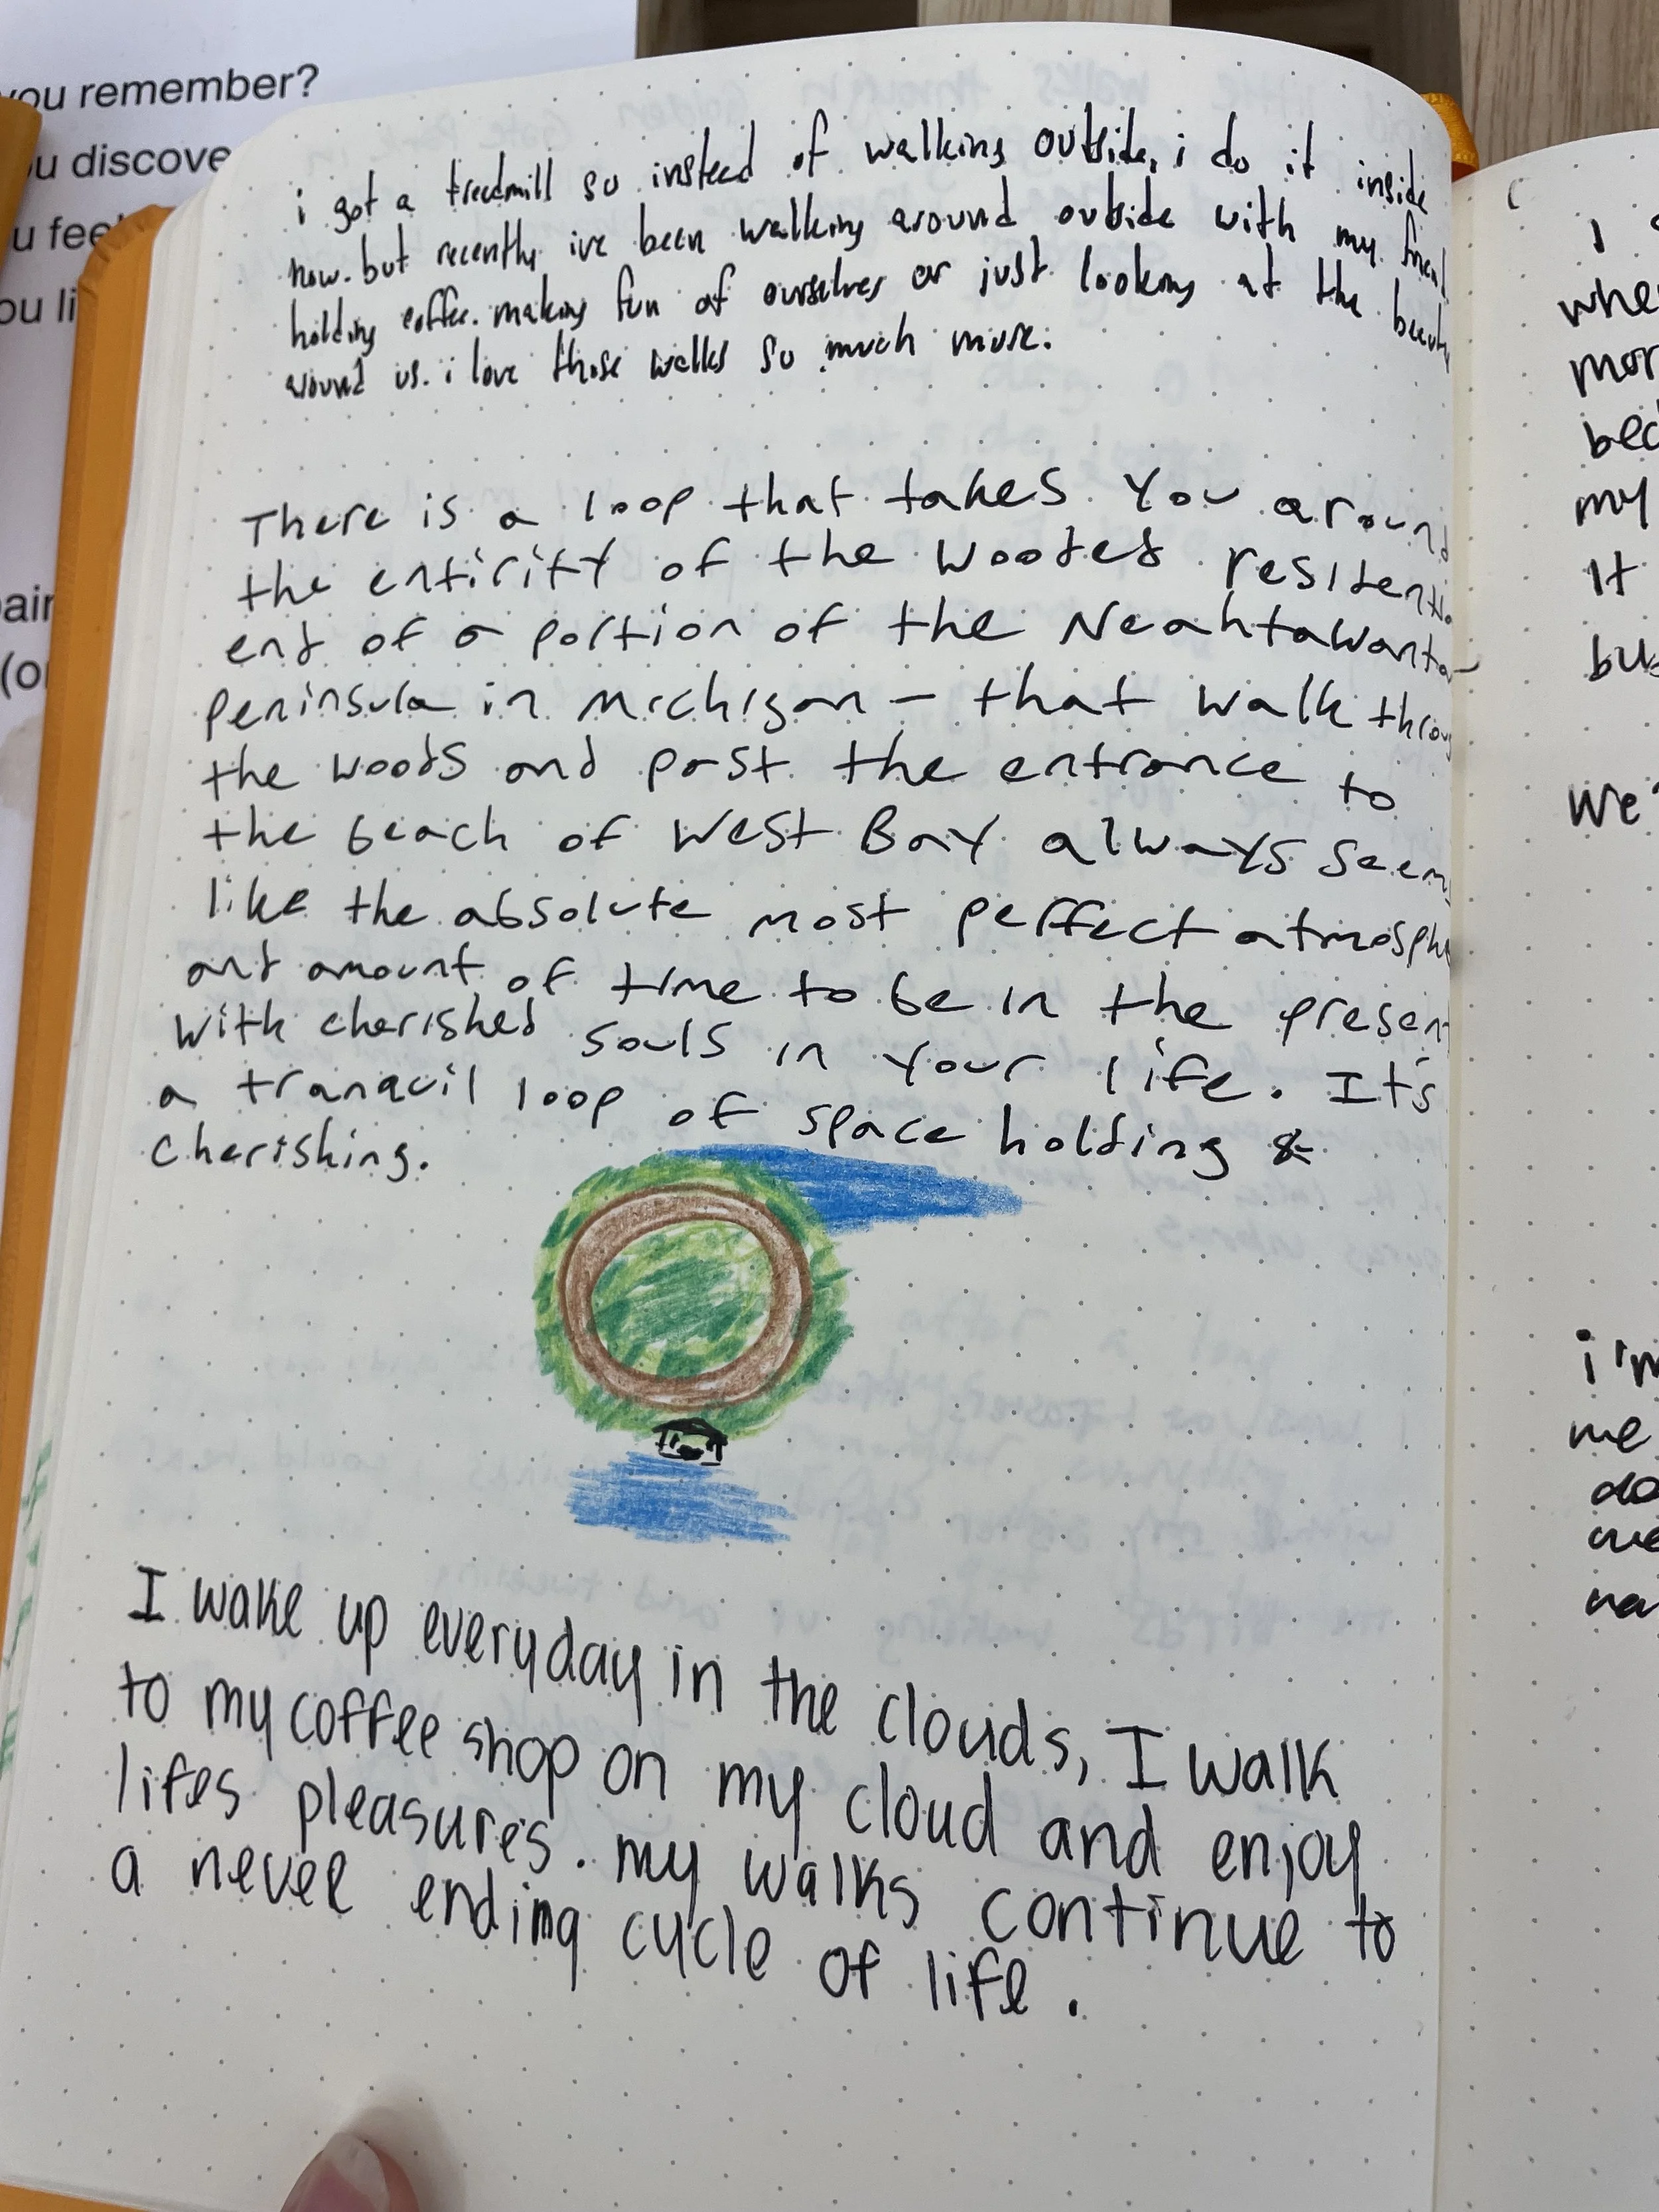 you remember?
u discove
u fee
ou li
air
(or
i got a treadmill so instead of walking outside, i do it inside
now. but recently ive been walking around outside with my friend
holding coffee. making fun of ourselves or just looking at the beauty
around us. i love those walks so much more.
There is a loop that takes you around
the entirity of the wooded residentia
end of a portion of the Neahtawanta
peninsula in Michigan – that walk throu
the woods and past the entrance to
the beach of West Bay always seem
like the absolute most perffect atmosphe
and amount of time to be in the presen
with cherished souls in your life. It's
a tranquil loop of space holding &
cherishing.
I wake up everyday in the clouds, I walk
to my coffee shop on my cloud and enjoy
lifes pleasures. my walks continue to
a never ending cycle of life.
I
whe
mor
bec
my
It
bus
we'
i'm
me
do
we
na